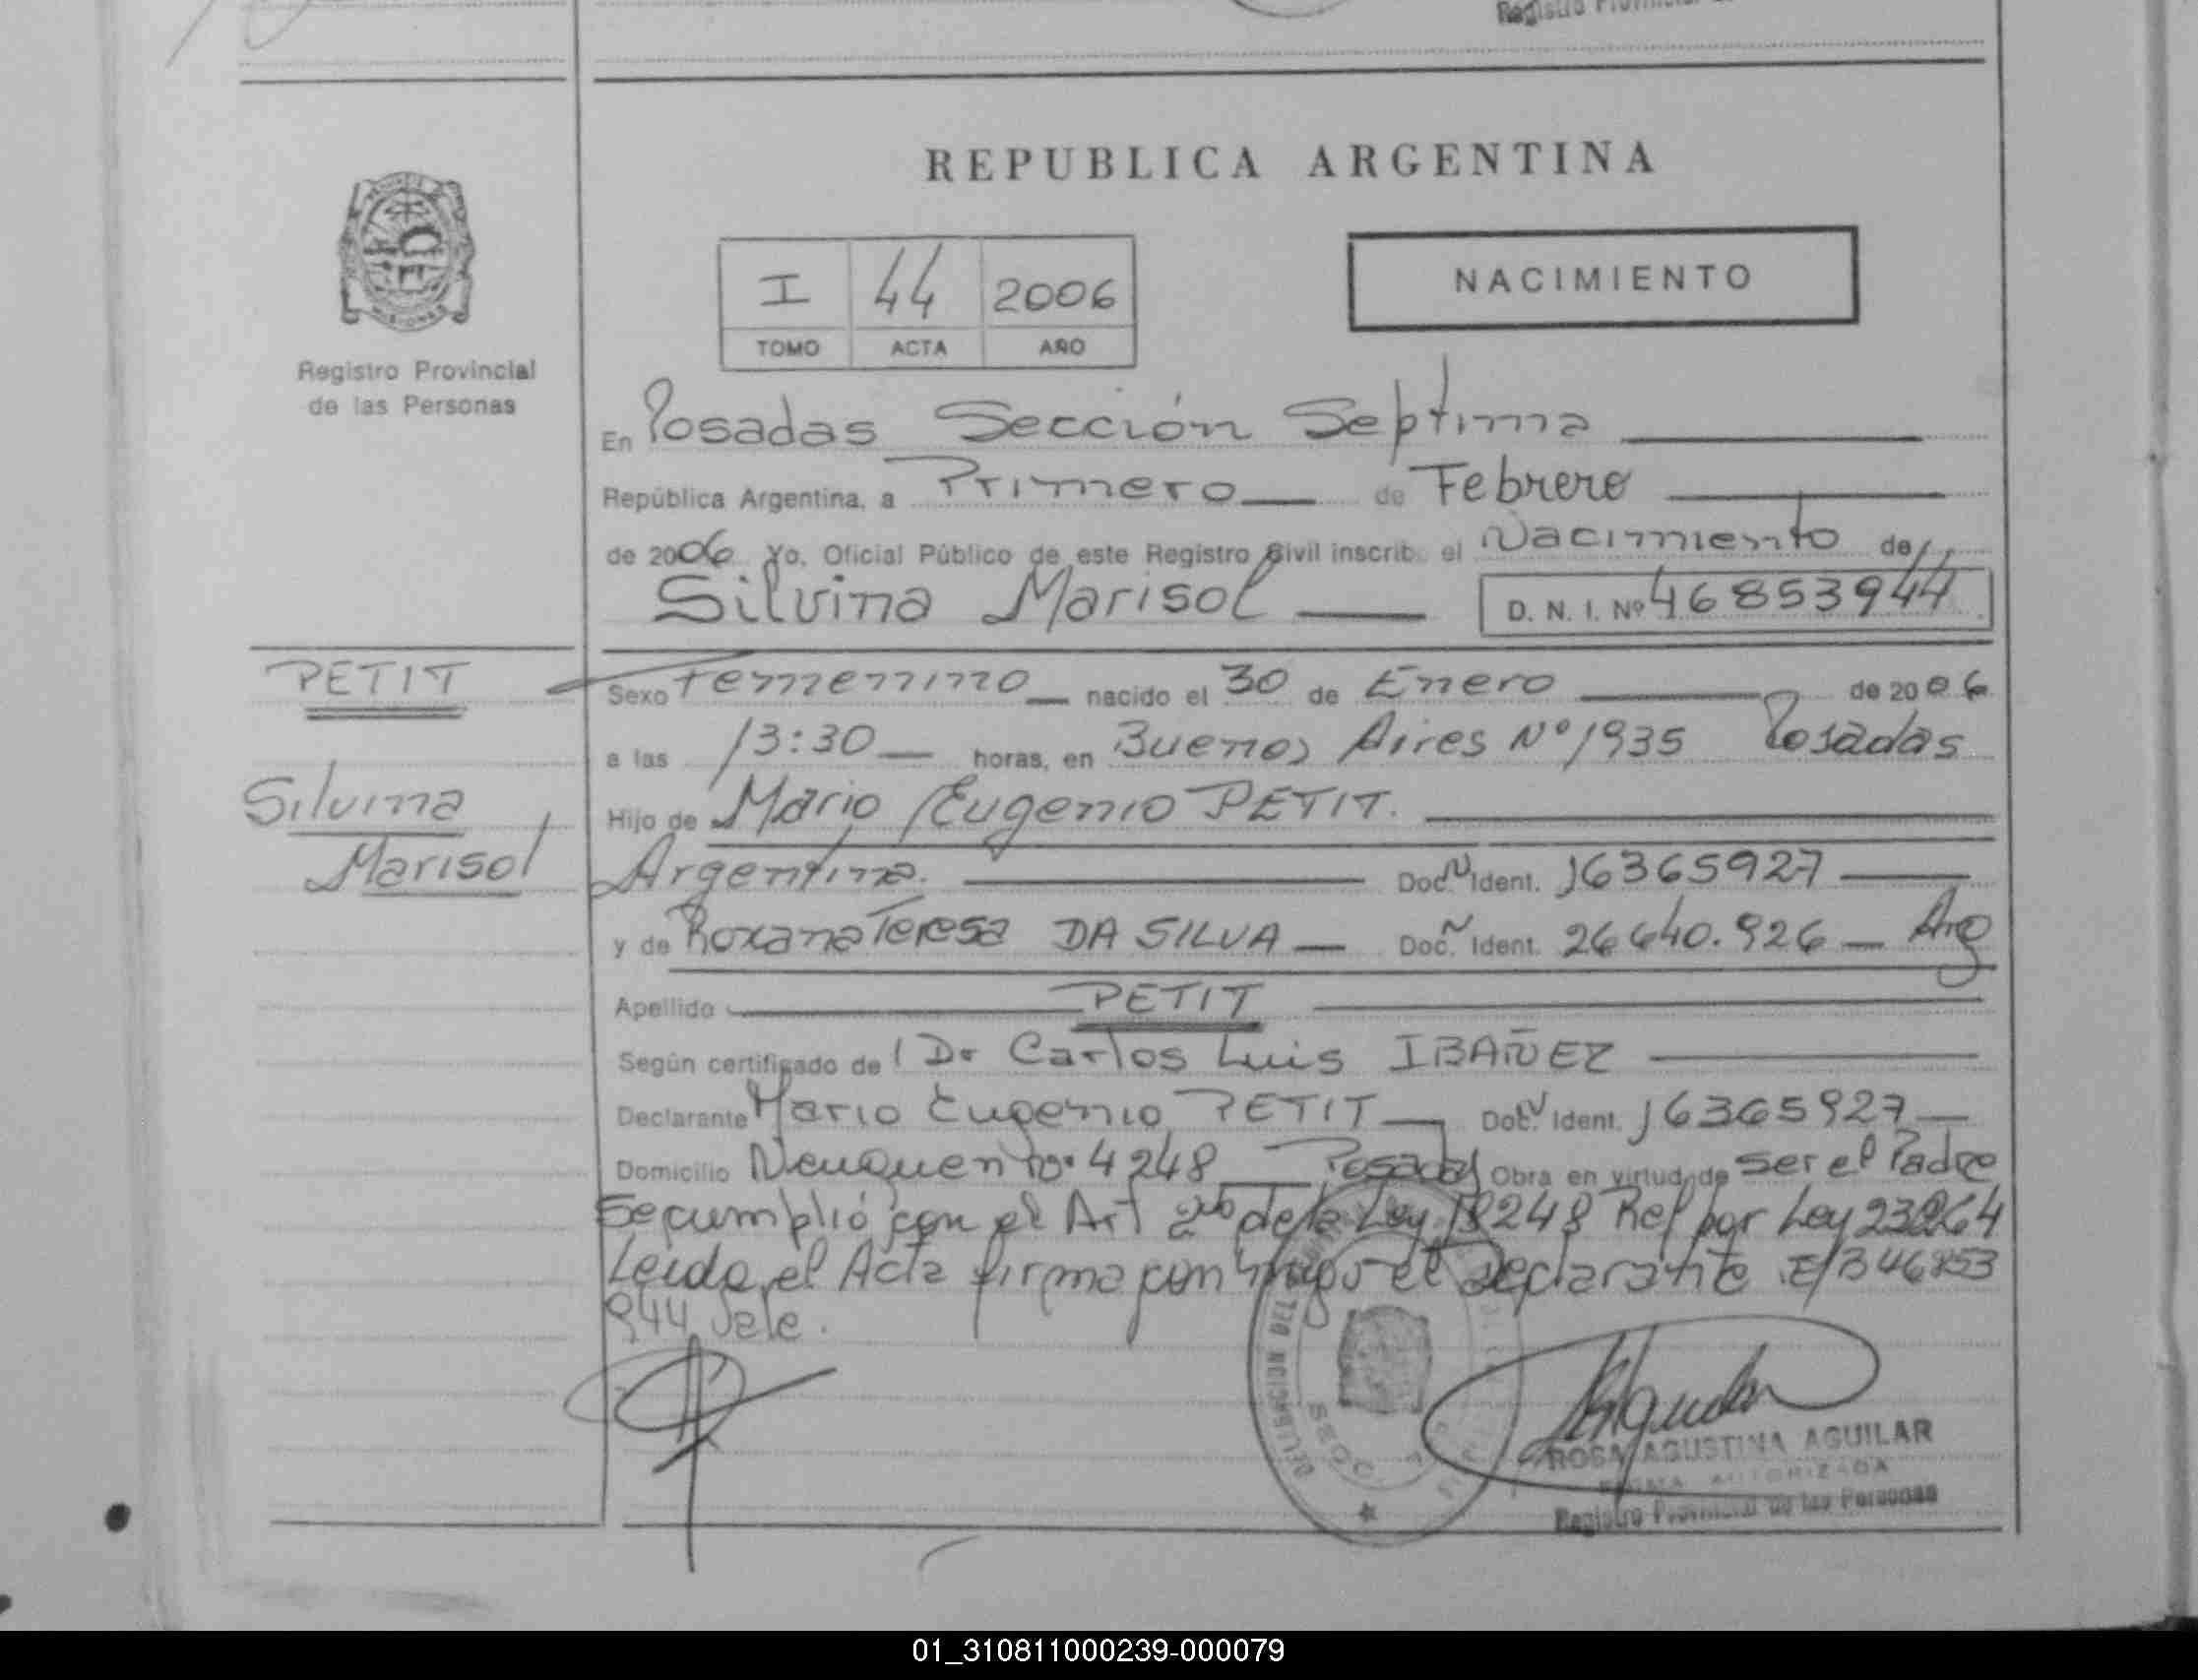 Registro
REPUBLICA ARGENTINA
MISIONES
Registro Provincial
de las Personas
I 44 2006
TOMO ACTA AÑO
NACIMIENTO
En Posadas Sección Septima
República Argentina, a Primero de Febrero
de 2006 Yo, Oficial Público de este Registro Civil inscribo el Nacimiento de
Silvina Marisol D. N. I. Nº 46853944
PETIT
Silvina
Marisol
Sexo Femenino nacido el 30 de Enero de 2006
a las 13:30 horas, en Buenos Aires Nº 1935 Posadas
Hijo de Mario Eugenio PETIT.
Argentina. Doc. N Ident. 16365927
y de Roxana Teresa DA SILVA Doc. N Ident. 26640.926 Arg
Apellido PETIT
Según certificado de Dr Carlos Luis IBAÑEZ
Declarante Mario Eugenio PETIT Doc. N Ident. 16365927
Domicilio Neuquen nº 4248 Posadas Obra en virtud de ser el Padre
Se cumplió con el Art 2do de la Ley 18248 Ref por Ley 23264
Leida el Acta firma conmigo el Declarante E/ 46853
944 Vale.
SECC
ROSA AGUSTINA AGUILAR
FIRMA AUTORIZADA
Registro Provincial de las Personas
01_310811000239-000079